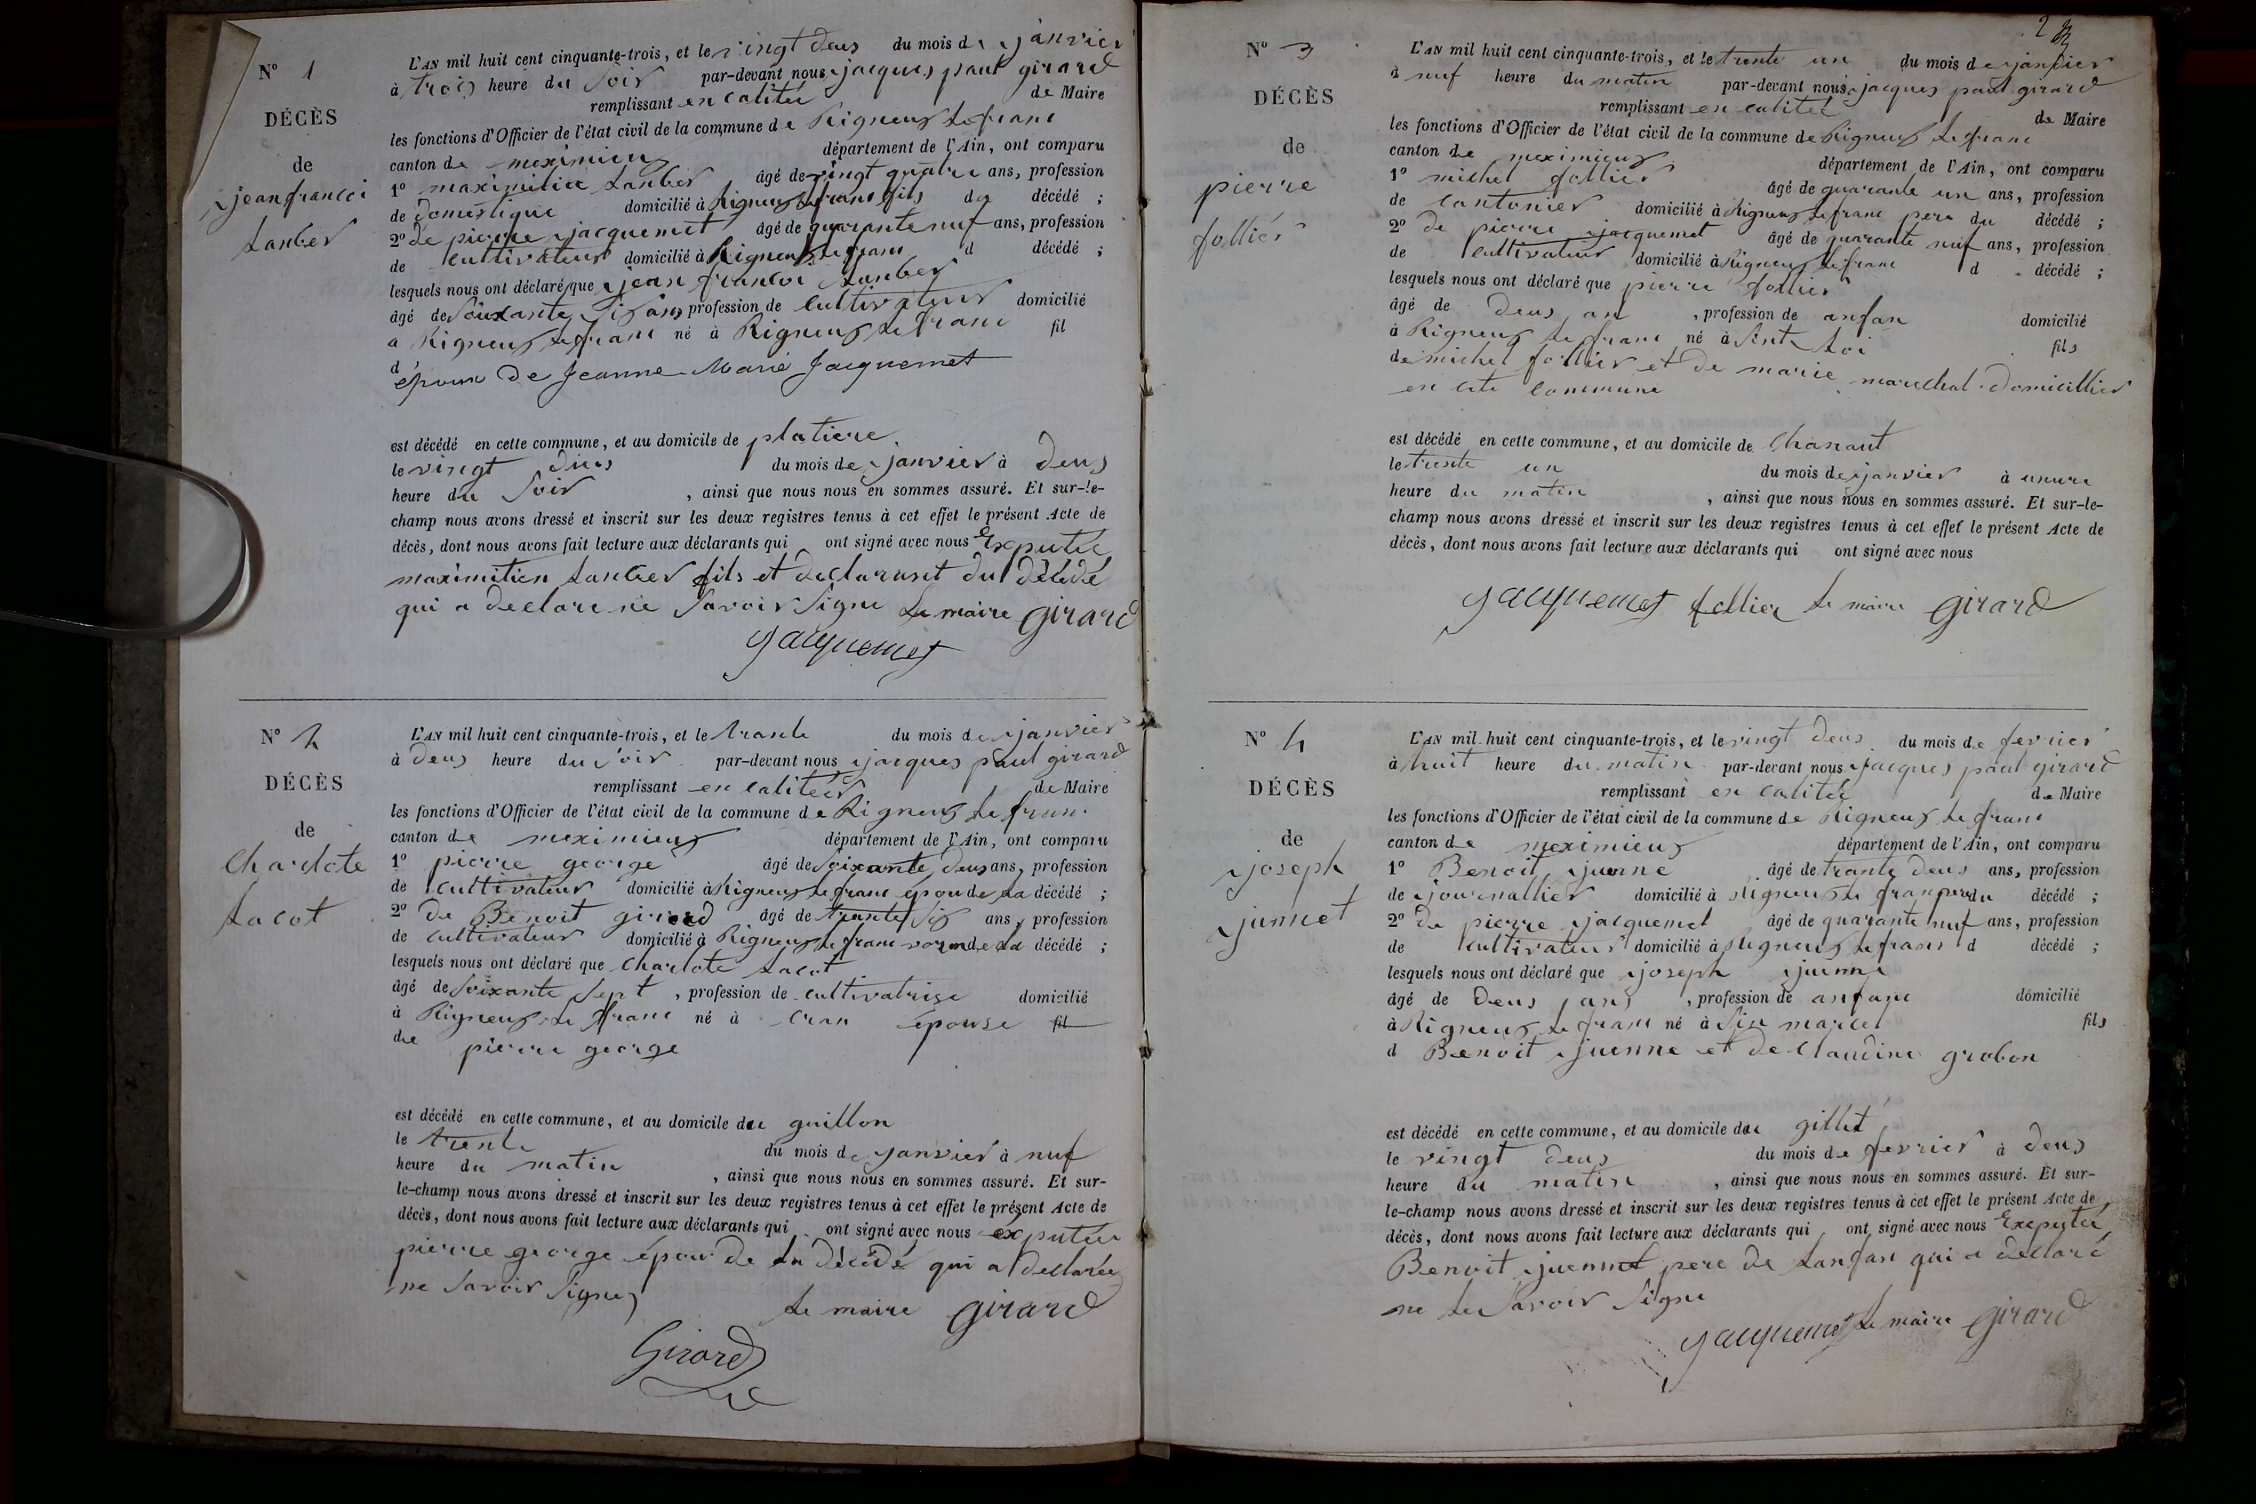 N° 1
DÉCÈS
de
jean francoi
Lanber
L'AN mil huit cent cinquante-trois, et le vingt deus du mois de janvier
à trois heure du soir par-devant nous jacques paul girard
remplissant en calitée de Maire
les fonctions d'Officier de l'état civil de la commune de Rigneux le franc
canton de meximieux département de l'Ain, ont comparu
1° maximilien Lanber âgé de vingt quatre ans, profession
de domestique domicilié à Rigneux le franc fils du décédé ;
2° de pierre jacquemet âgé de quarante nuf ans, profession
de cultivateur domicilié à Rigneux le franc d décédé ;
lesquels nous ont déclaré que jean francoi Lanber
âgé de Soixante Six ans profession de cultivateur domicilié
a Rigneux le franc né à Rigneux le franc fil
d
époux de Jeanne Marie Jacquemet
est décédé en cette commune, et au domicile de platiere
le vingt deus du mois de janvier à deus
heure du Soir , ainsi que nous nous en sommes assuré. Et sur-le-
champ nous avons dressé et inscrit sur les deux registres tenus à cet effet le présent Acte de
décès, dont nous avons fait lecture aux déclarants qui ont signé avec nous Exeputée
maximilien Lanber fils et declarant du décédé
qui a declare ne Savoir Signe Le maire girard
jacquemet
N° 2
DÉCÈS
de
Charlote
Lacot
L'AN mil huit cent cinquante-trois, et le trante du mois de janvier
à deus heure du soir par-devant nous jacques paul girard
remplissant en calitée de Maire
les fonctions d'Officier de l'état civil de la commune de Rigneux le franc
canton de meximieux département de l'Ain, ont comparu
1° pierre george âgé de soixante deus ans, profession
de cultivateur domicilié à Rigneux le franc epou de La décédé ;
2° de Benoit girard âgé de trante Six ans, profession
de cultivateur domicilié à Rigneux le franc de La décédé ;
lesquels nous ont déclaré que Charlote Lacot
âgé de Soixante Sept , profession de cultivatrise domicilié
à Rigneux le franc né à Cran épouse fil
de pierre george
est décédé en cette commune, et au domicile du guillon
le trente du mois de janvier à nuf
heure du matin , ainsi que nous nous en sommes assuré. Et sur-
le-champ nous avons dressé et inscrit sur les deux registres tenus à cet effet le présent Acte de
décès, dont nous avons fait lecture aux déclarants qui ont signé avec nous exputée
pierre george épour de La décédé qui a declarée
ne Savoir Signe
Le maire girard
Girard
2
N° 3
DÉCÈS
de
pierre
follier
L'AN mil huit cent cinquante-trois, et le trente un du mois de janvier
à nuf heure du matin par-devant nous jacques paul girard
remplissant en calitée de Maire
les fonctions d'Officier de l'état civil de la commune de Rigneux le franc
canton de meximieux département de l'Ain, ont comparu
1° michel follier âgé de quarante un ans, profession
de cantonier domicilié à Rigneux le franc pere du décédé ;
2° de pierre jacquemet âgé de quarante nuif ans, profession
de cultivateur domicilié à Rigneux le franc d décédé ;
lesquels nous ont déclaré que pierre follier
âgé de deus an , profession de anfan domicilié
à Rigneux le franc né à Sinte Loi fils
de michel follier et de marie marechal domicillier
en cete commune
est décédé en cette commune, et au domicile de Chanaut
le trente un du mois de janvier à unure
heure du matin , ainsi que nous nous en sommes assuré. Et sur-le-
champ nous avons dressé et inscrit sur les deux registres tenus à cet effet le présent Acte de
décès, dont nous avons fait lecture aux déclarants qui ont signé avec nous
jacquemet follier Le maire girard
N° 4
DÉCÈS
de
joseph
junnet
L'AN mil huit cent cinquante-trois, et le vingt deus du mois de fevrier
à huit heure du matin par-devant nous jacques paul girard
remplissant en calitée de Maire
les fonctions d'Officier de l'état civil de la commune de Rigneux le franc
canton de meximieux département de l'Ain, ont comparu
1° Benoit juenne âgé de trante deus ans, profession
de journallier domicilié à Rigneux le franc pere du décédé ;
2° de pierre jacquemet âgé de quarante nuf ans, profession
de cultivateur domicilié à Rigneux le franc d décédé ;
lesquels nous ont déclaré que joseph juenne
âgé de deus ans , profession de anfant domicilié
à Rigneux le franc né à Sin marcel fils
d Benoit juenne et de claudine grobon
est décédé en cette commune, et au domicile du gillet
le vingt deus du mois de fevrier à deus
heure du matin , ainsi que nous nous en sommes assuré. Et sur-
le-champ nous avons dressé et inscrit sur les deux registres tenus à cet effet le présent Acte de
décès, dont nous avons fait lecture aux déclarants qui ont signé avec nous Exeputée
Benoit juennet pere de Lanfan qui a declaré
ne Le Savoir Signe
jacquemet Le maire girard